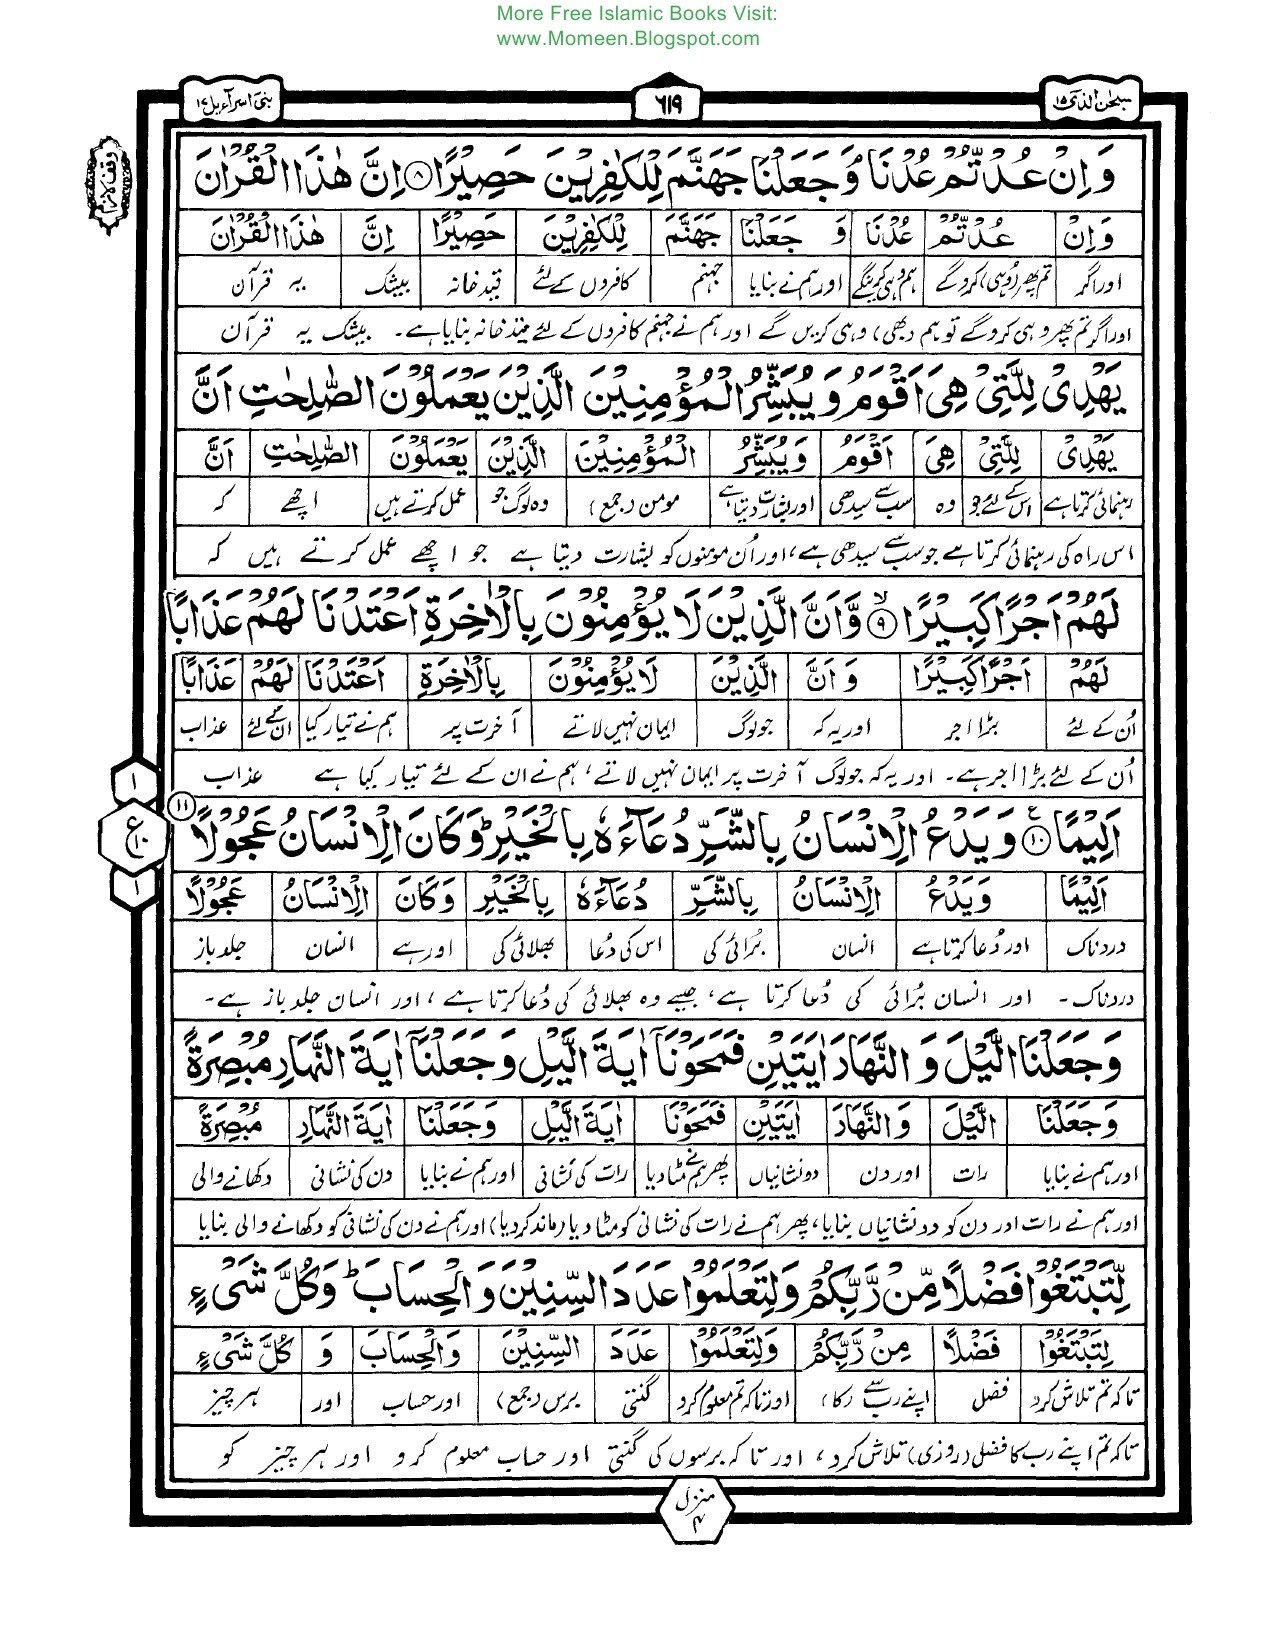 More Free Islamic Books Visit:
www.Momeen.Blogspot.com
سبحن الذی ۱۵
۶۱۹
بنی اسرآءیل ۱۷
وقف لازم
وَاِنْ عُدْتُّمْ عُدْنَا وَجَعَلْنَا جَهَنَّمَ لِلْكٰفِرِيْنَ حَصِيْرًا ۸ اِنَّ هٰذَا الْقُرْاٰنَ
وَاِنْ عُدْتُّمْ عُدْنَا وَ جَعَلْنَا جَهَنَّمَ لِلْكٰفِرِيْنَ حَصِيْرًا اِنَّ هٰذَا الْقُرْاٰنَ
اور اگر تم پھر (وہی) کرو گے ہم وہی کرینگے اور ہم نے بنایا جہنم کافروں کے لئے قید خانہ بیشک یہ قرآن
اور اگر تم پھر وہی کرو گے تو ہم (بھی) وہی کریں گے اور ہم نے جہنم کافروں کے لئے قید خانہ بنایا ہے۔ بیشک یہ قرآن
يَهْدِیْ لِلَّتِیْ هِیَ اَقْوَمُ وَيُبَشِّرُ الْمُؤْمِنِيْنَ الَّذِيْنَ يَعْمَلُوْنَ الصّٰلِحٰتِ اَنَّ
يَهْدِیْ لِلَّتِیْ هِیَ اَقْوَمُ وَيُبَشِّرُ الْمُؤْمِنِيْنَ الَّذِيْنَ يَعْمَلُوْنَ الصّٰلِحٰتِ اَنَّ
رہنمائی کرتا ہے اس کے لئے جو وہ سب سے سیدھی اور بشارت دیتا ہے مومن (جمع) وہ لوگ جو عمل کرتے ہیں اچھے کہ
اس راہ کی رہنمائی کرتا ہے جو سب سے سیدھی ہے، اور اُن مومنوں کو بشارت دیتا ہے جو اچھے عمل کرتے ہیں کہ
لَهُمْ اَجْرًا كَبِيْرًا ۹ وَّاَنَّ الَّذِيْنَ لَا يُؤْمِنُوْنَ بِالْاٰخِرَةِ اَعْتَدْنَا لَهُمْ عَذَابًا
لَهُمْ اَجْرًا كَبِيْرًا وَ اَنَّ الَّذِيْنَ لَا يُؤْمِنُوْنَ بِالْاٰخِرَةِ اَعْتَدْنَا لَهُمْ عَذَابًا
اُن کے لئے بڑا اجر اور یہ کہ جو لوگ ایمان نہیں لاتے آخرت پر ہم نے تیار کیا ان کے لئے عذاب
اُن کے لئے بڑا اجر ہے۔ اور یہ کہ جو لوگ آخرت پر ایمان نہیں لاتے، ہم نے ان کے لئے تیار کیا ہے عذاب
اَلِيْمًا ۱۰ وَيَدْعُ الْاِنْسَانُ بِالشَّرِّ دُعَآءَهٗ بِالْخَيْرِ ؕ وَكَانَ الْاِنْسَانُ عَجُوْلًا ۱۱
۱
ع ۱۰
۱
اَلِيْمًا وَيَدْعُ الْاِنْسَانُ بِالشَّرِّ دُعَآءَهٗ بِالْخَيْرِ وَكَانَ الْاِنْسَانُ عَجُوْلًا
دردناک اور دُعا کرتا ہے انسان بُرائی کی اس کی دُعا بھلائی کی اور ہے انسان جلد باز
دردناک۔ اور انسان بُرائی کی دُعا کرتا ہے، جیسے وہ بھلائی کی دُعا کرتا ہے، اور انسان جلد باز ہے۔
وَجَعَلْنَا الَّيْلَ وَالنَّهَارَ اٰيَتَيْنِ فَمَحَوْنَآ اٰيَةَ الَّيْلِ وَجَعَلْنَآ اٰيَةَ النَّهَارِ مُبْصِرَةً
وَجَعَلْنَا الَّيْلَ وَالنَّهَارَ اٰيَتَيْنِ فَمَحَوْنَا اٰيَةَ الَّيْلِ وَجَعَلْنَا اٰيَةَ النَّهَارِ مُبْصِرَةً
اور ہم نے بنایا رات اور دن دو نشانیاں پھر ہم نے مٹا دیا رات کی نشانی اور ہم نے بنایا دن کی نشانی دکھانے والی
اور ہم نے رات اور دن کو دو نشانیاں بنایا، پھر ہم نے رات کی نشانی کو مٹا دیا (ماند کر دیا) اور ہم نے دن کی نشانی کو دکھانے والی بنایا
لِّتَبْتَغُوْا فَضْلًا مِّنْ رَّبِّكُمْ وَلِتَعْلَمُوْا عَدَدَ السِّنِيْنَ وَالْحِسَابَ ؕ وَكُلَّ شَیْءٍ
لِتَبْتَغُوْا فَضْلًا مِنْ رَّبِّكُمْ وَلِتَعْلَمُوْا عَدَدَ السِّنِيْنَ وَالْحِسَابَ وَ كُلَّ شَیْءٍ
تاکہ تم تلاش کرو فضل اپنے رب سے (کا) اور تاکہ تم معلوم کرو گنتی برس (جمع) اور حساب اور ہر چیز
تاکہ تم اپنے رب کا فضل (روزی) تلاش کرو، اور تاکہ برسوں کی گنتی اور حساب معلوم کرو اور ہر چیز کو
منزل ۴